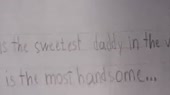 is the sweetest daddy in the
is the most handsome...